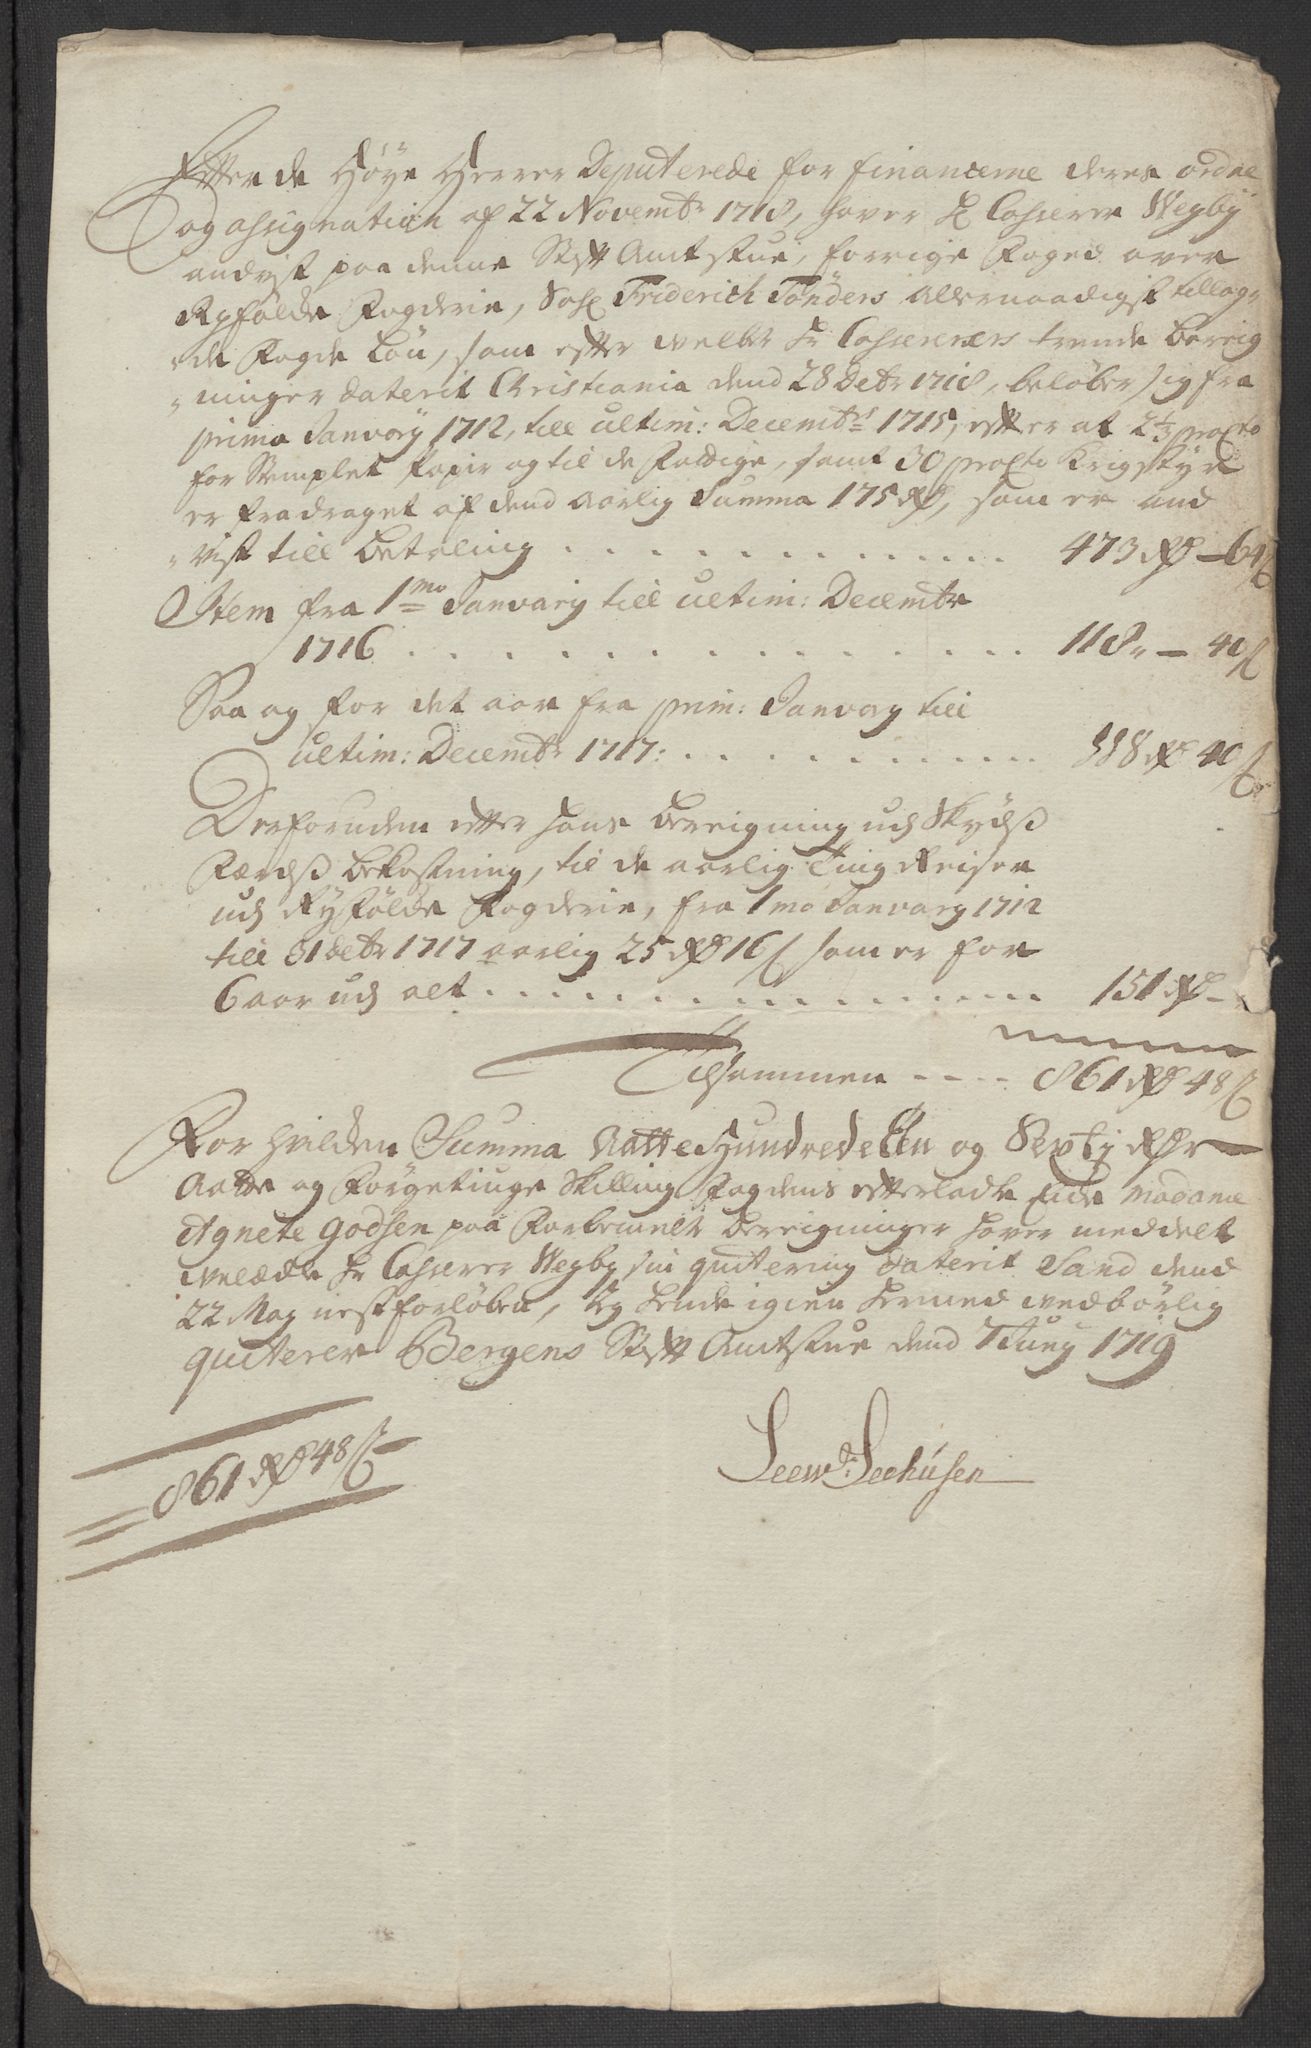 Efter de Høye Herrer Deputerede for Financerne deres ordre
og assignation af 22 Novembr 1718, haver Hr Casserer Wegby
anvist paa denne Stift Amtstue, forrige Foged over
Ryfølche Fogderie, Sal: Friderich Tønders Allernaadigst tillag-
de Fogde Løn, som efter velbte Hr Casserers trende bereig-
ninger daterit Christiania dend 28 Decbr 1718, beløber sig fra
prima Janvary 1712, till ultim: Decembr 1715, efter at 2½ procto
for Stemplet Papir og til de Fattige, samt 30 procto Krigstyr
er fradraget af dend aarlig Summa 175 Rd, som er and-
vist till betaling . . . . . . . . . . 473 Rd - 64 s
Item fra 1mo Janvary till ultim: Decembr
1716 . . . . . . . . . . . . . . 118 „ - 40 s
Saa og for det aar fra prim: Janvary till
ultim: Decembr 1717: . . . . . . . . . . 118 Rd 40 s
Derforuden efter hans bereigning udj Skydtz
Færdtz bekostning, til de aarlig Ting Reiser
udj Ryfølche Fogderie, fra 1mo Janvary 1712
till 31 Decbr 1717 aarlig 25 Rd 16 s som er for
6 aar udj alt . . . . . . . . . . . . 151 Rd -
Tilsammen - - - - 861 Rd 48 s
For hvilcken Summa Aatte Hundrede Een og Sexty Rdr
Aatte og Førgetiuge Skilling Fogdens efterladte Encke Madame
Agnete Godsen paa Forbemelte bereigninger haver meddelt
velædle Hr Casserer Wegby sin qvitering daterit Sand dend
22 May nestforløben, Og hende igien hermed vedbørlig
qviterer Bergens Stift Amtstue dend 7 Juny 1719
861 Rd 48 s
Leew: Seehusen